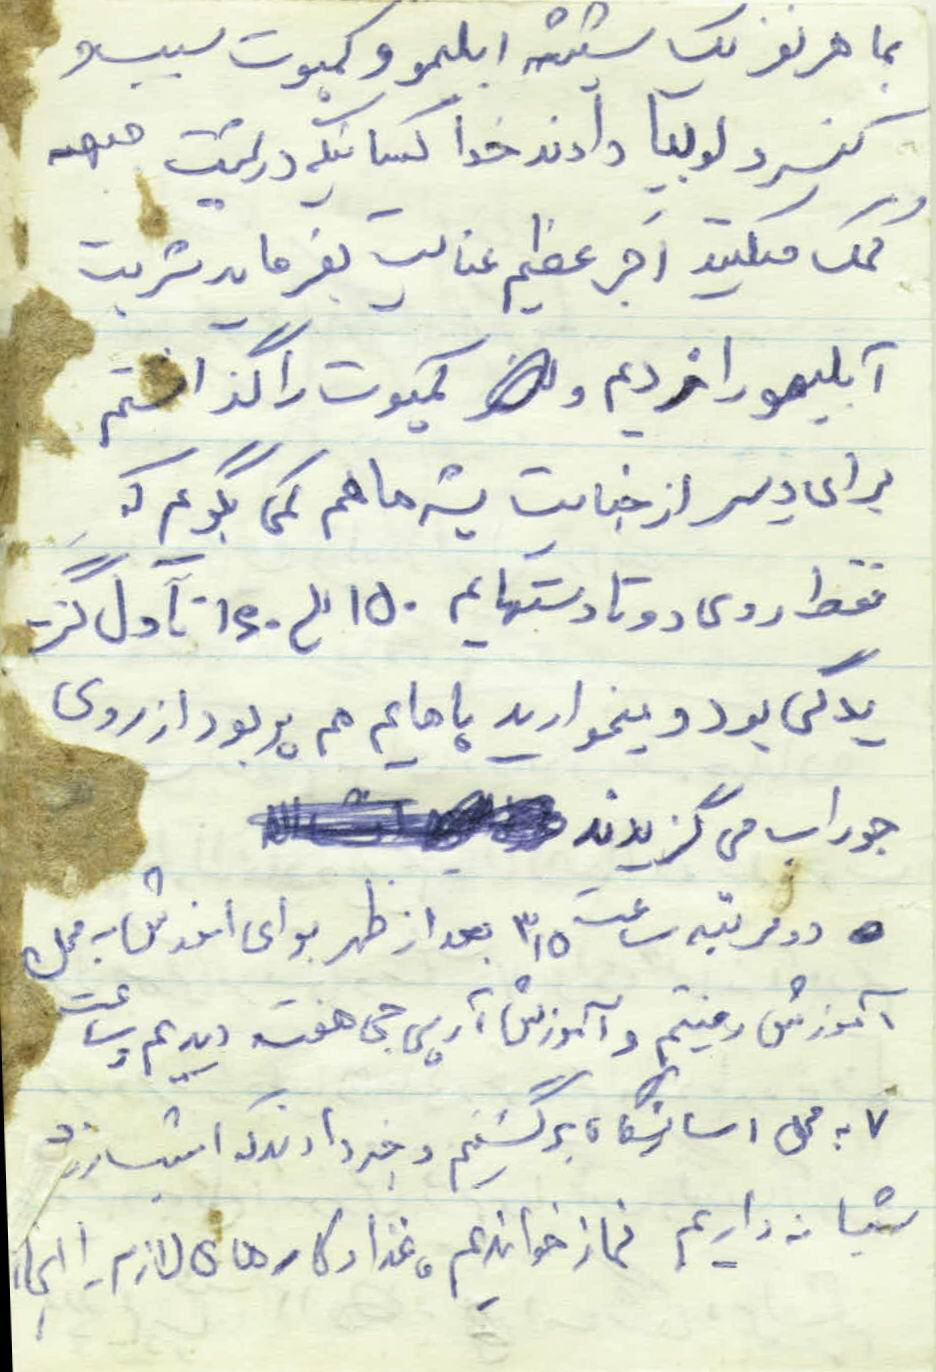 بما هر نفر یک شیشه ابلیمو و کمپوت سیب و
کنسرو لوبیا دادند خدا کسانیکه در پشت جبهه
کمک میکنند اَجر عظیم عنایت بفرماید شربت
آبلیمو را خوردم و کمپوت را گذاشتم
برای از جنایت پشه ها هم کمی بگویم که
فقط روی دو تا دستهایم ۱۵۰ الی ۱۶۰ تا
بود و پاهایم هم پر بود از روی
جوراب می گزیدند
دو مرتبه ساعت ۳/۱۵ بعد از ظهر برای اموزش به محل
آموزش رفتیم و آموزش آر پی جی هفت دیدیم و ساعت
۷ به محل برگشتیم و خبر دادند که امشب رزم
شبانه داریم نماز خواندیم و غذا و کارهای لازم را انجام